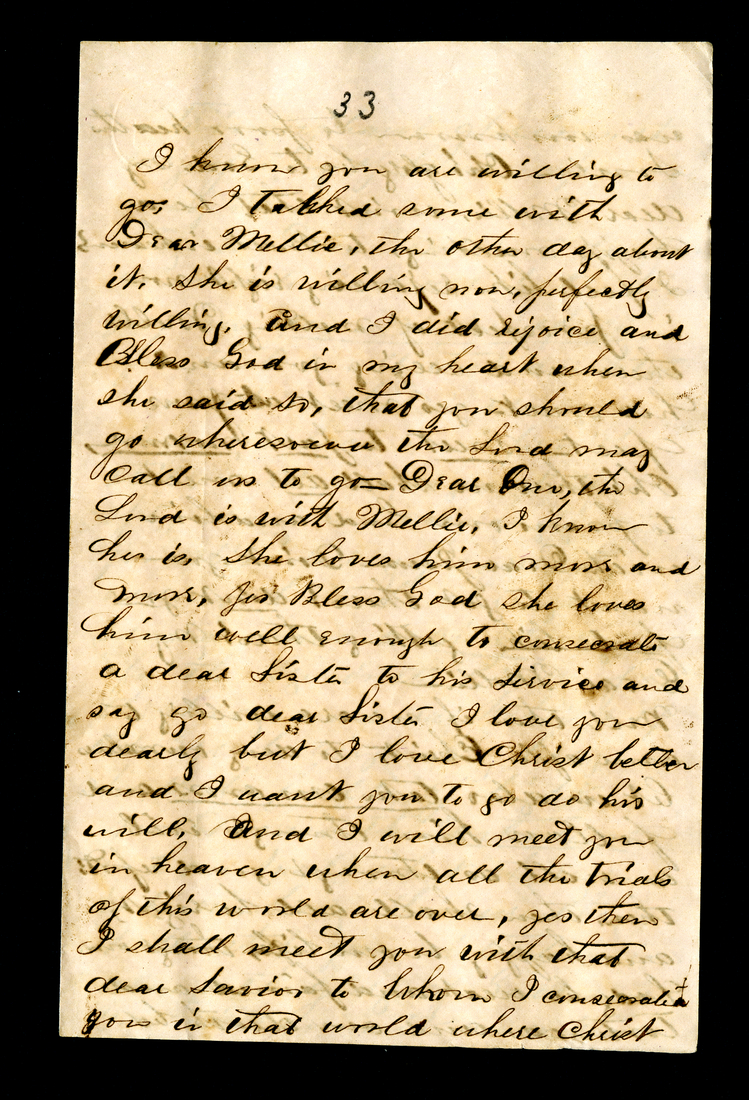 33
I know you are willing to
go, I talked some with
Dear Mellie, the other day about
it. She is willing now, perfectly
willing. And I did rejoice and
Bless God in my heart when
she said so, that you should
go wheresoever the Lord may
call us to go = Dear One, the
Lord is with Mellie, I know
he is. She loves him more and
more, yes Bless God she loves
him well enough to consecrate
a dear Sister to his service and
say go dear Sister I love you
dearly but I love Christ better
and I want you to go do his
will. And I will meet you
in heaven when all the trials
of this world are over, yes then
I shall meet you with that
dear Savior to whom I consecrated
you in that world where Christ